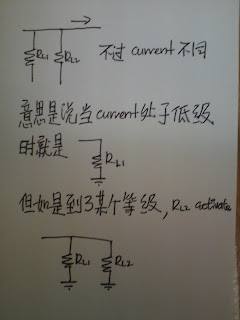 RL1 RL2 不过 current 不同
意思是说当current处于低级
时就是
RL1
但如是到了某个等级, RL2 activate
RL1 RL2